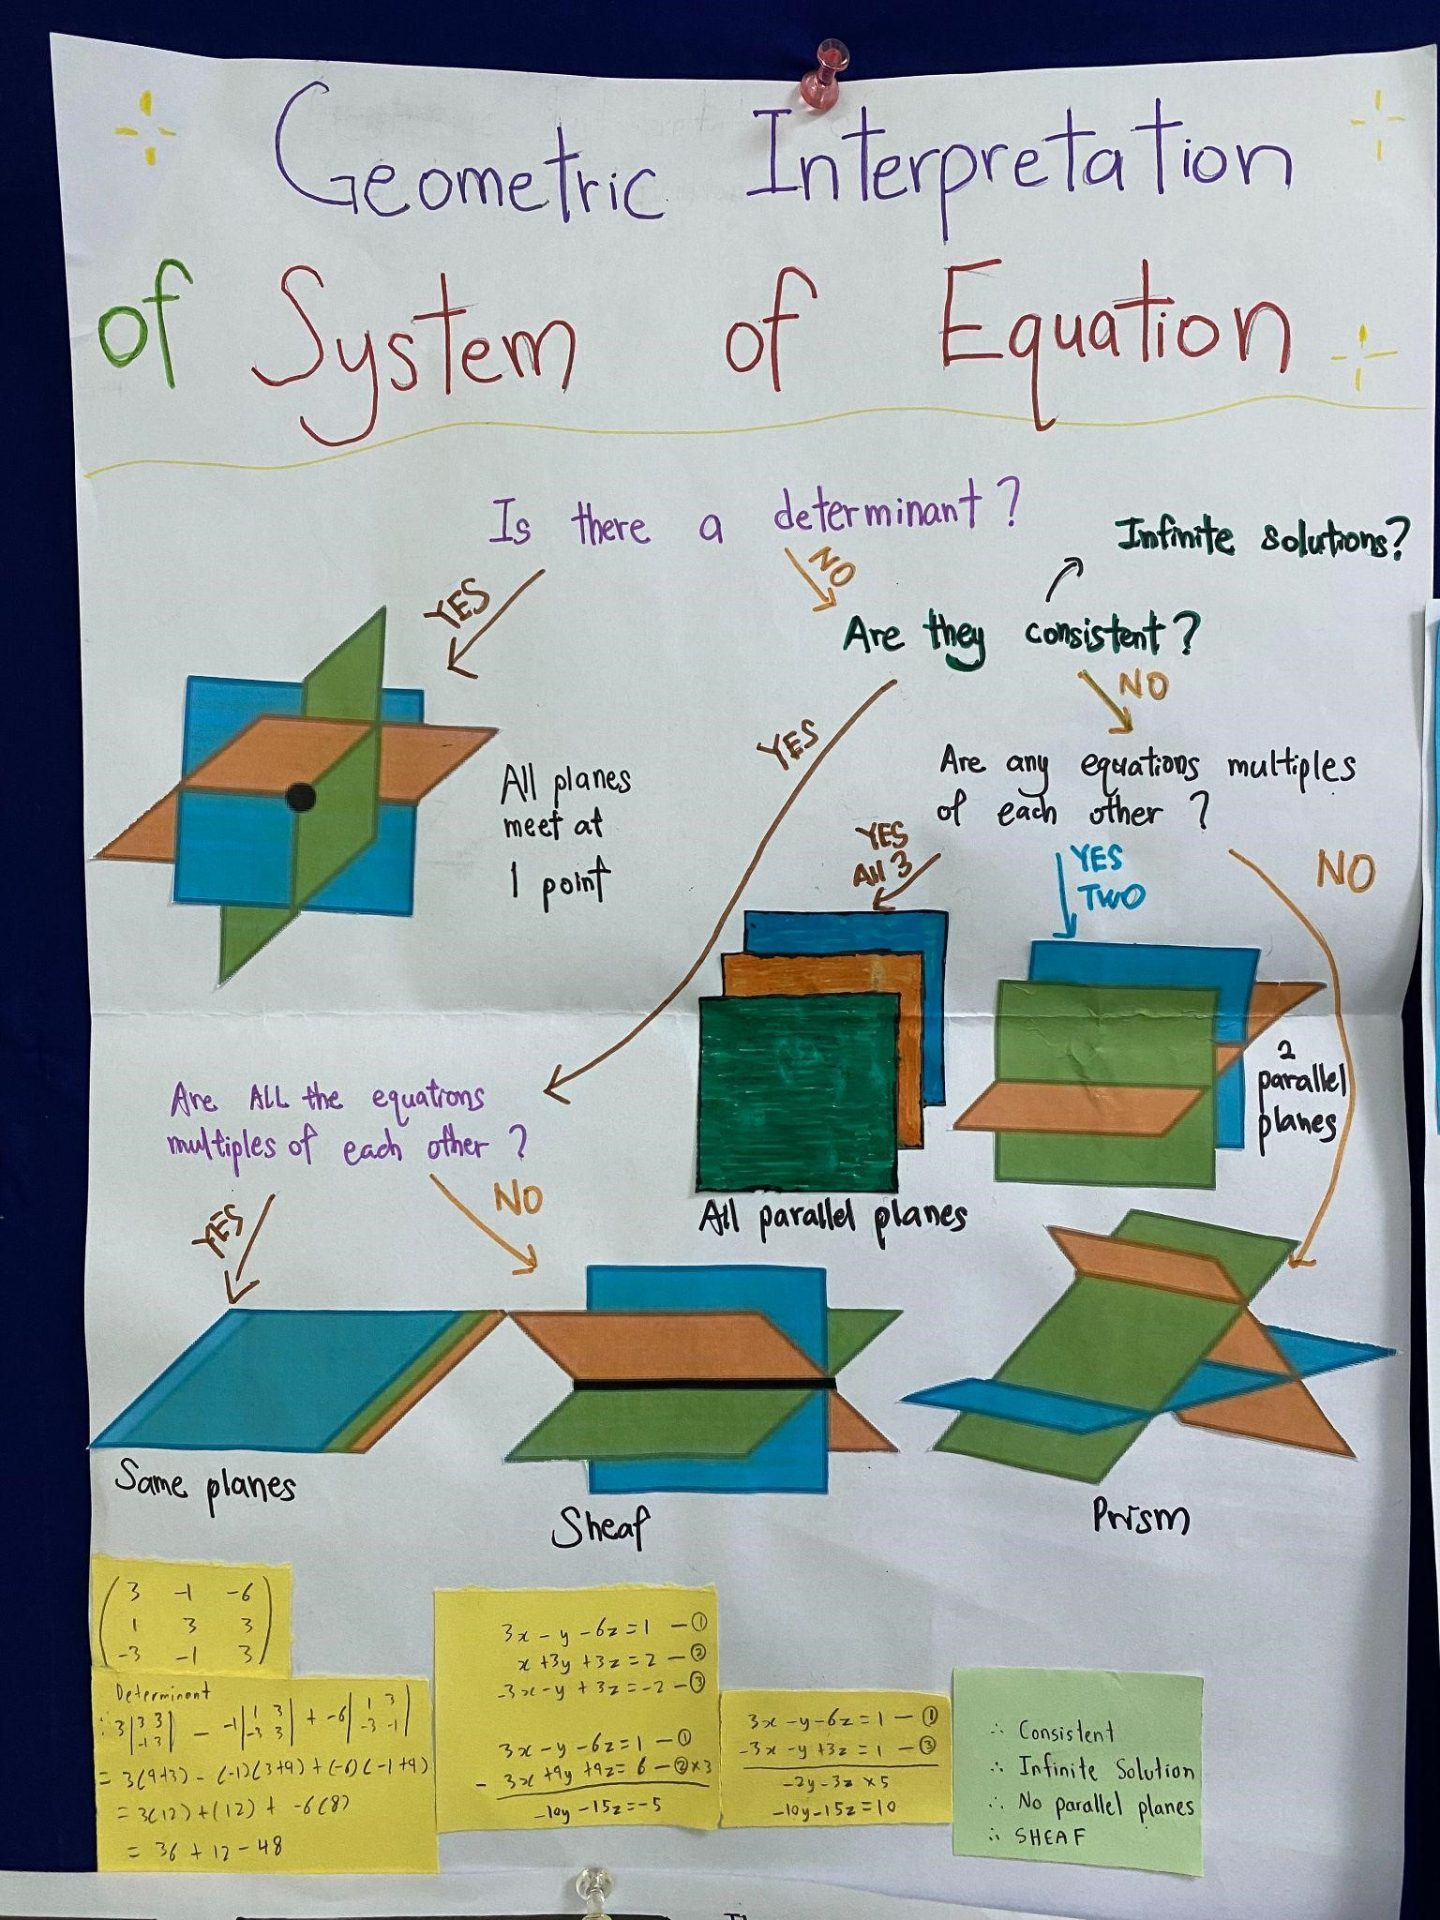 Geometric Interpretation
of System of Equation
Is there a determinant?
YES
NO
Infinite solutions?
Are they consistent?
YES
NO
All planes
meet at
1 point
Are any equations multiples
of each other?
YES
All 3
YES
TWO
NO
All parallel planes
2
parallel
planes
Are ALL the equations
multiples of each other?
YES
NO
Same planes
Sheaf
Prism
3 -1 -6
1 3 3
-3 -1 3
Determinant
∴ 3|3 3| - -1|1 3| + -6|1 3|
|-1 3| |-3 3| |-3 -1|
= 3(9+3) - (-1)(3+9) + (-6)(-1+9)
= 3(12) + (12) + -6(8)
= 36 + 12 - 48
3x - y - 6z = 1 - ①
x + 3y + 3z = 2 - ②
-3x - y + 3z = -2 - ③
3x - y - 6z = 1 - ①
- 3x + 9y + 9z = 6 - ② × 3
-10y - 15z = -5
3x - y - 6z = 1 - ①
-3x - y + 3z = 1 - ③
-2y - 3z × 5
-10y - 15z = 10
∴ Consistent
∴ Infinite Solution
∴ No parallel planes
∴ SHEAF